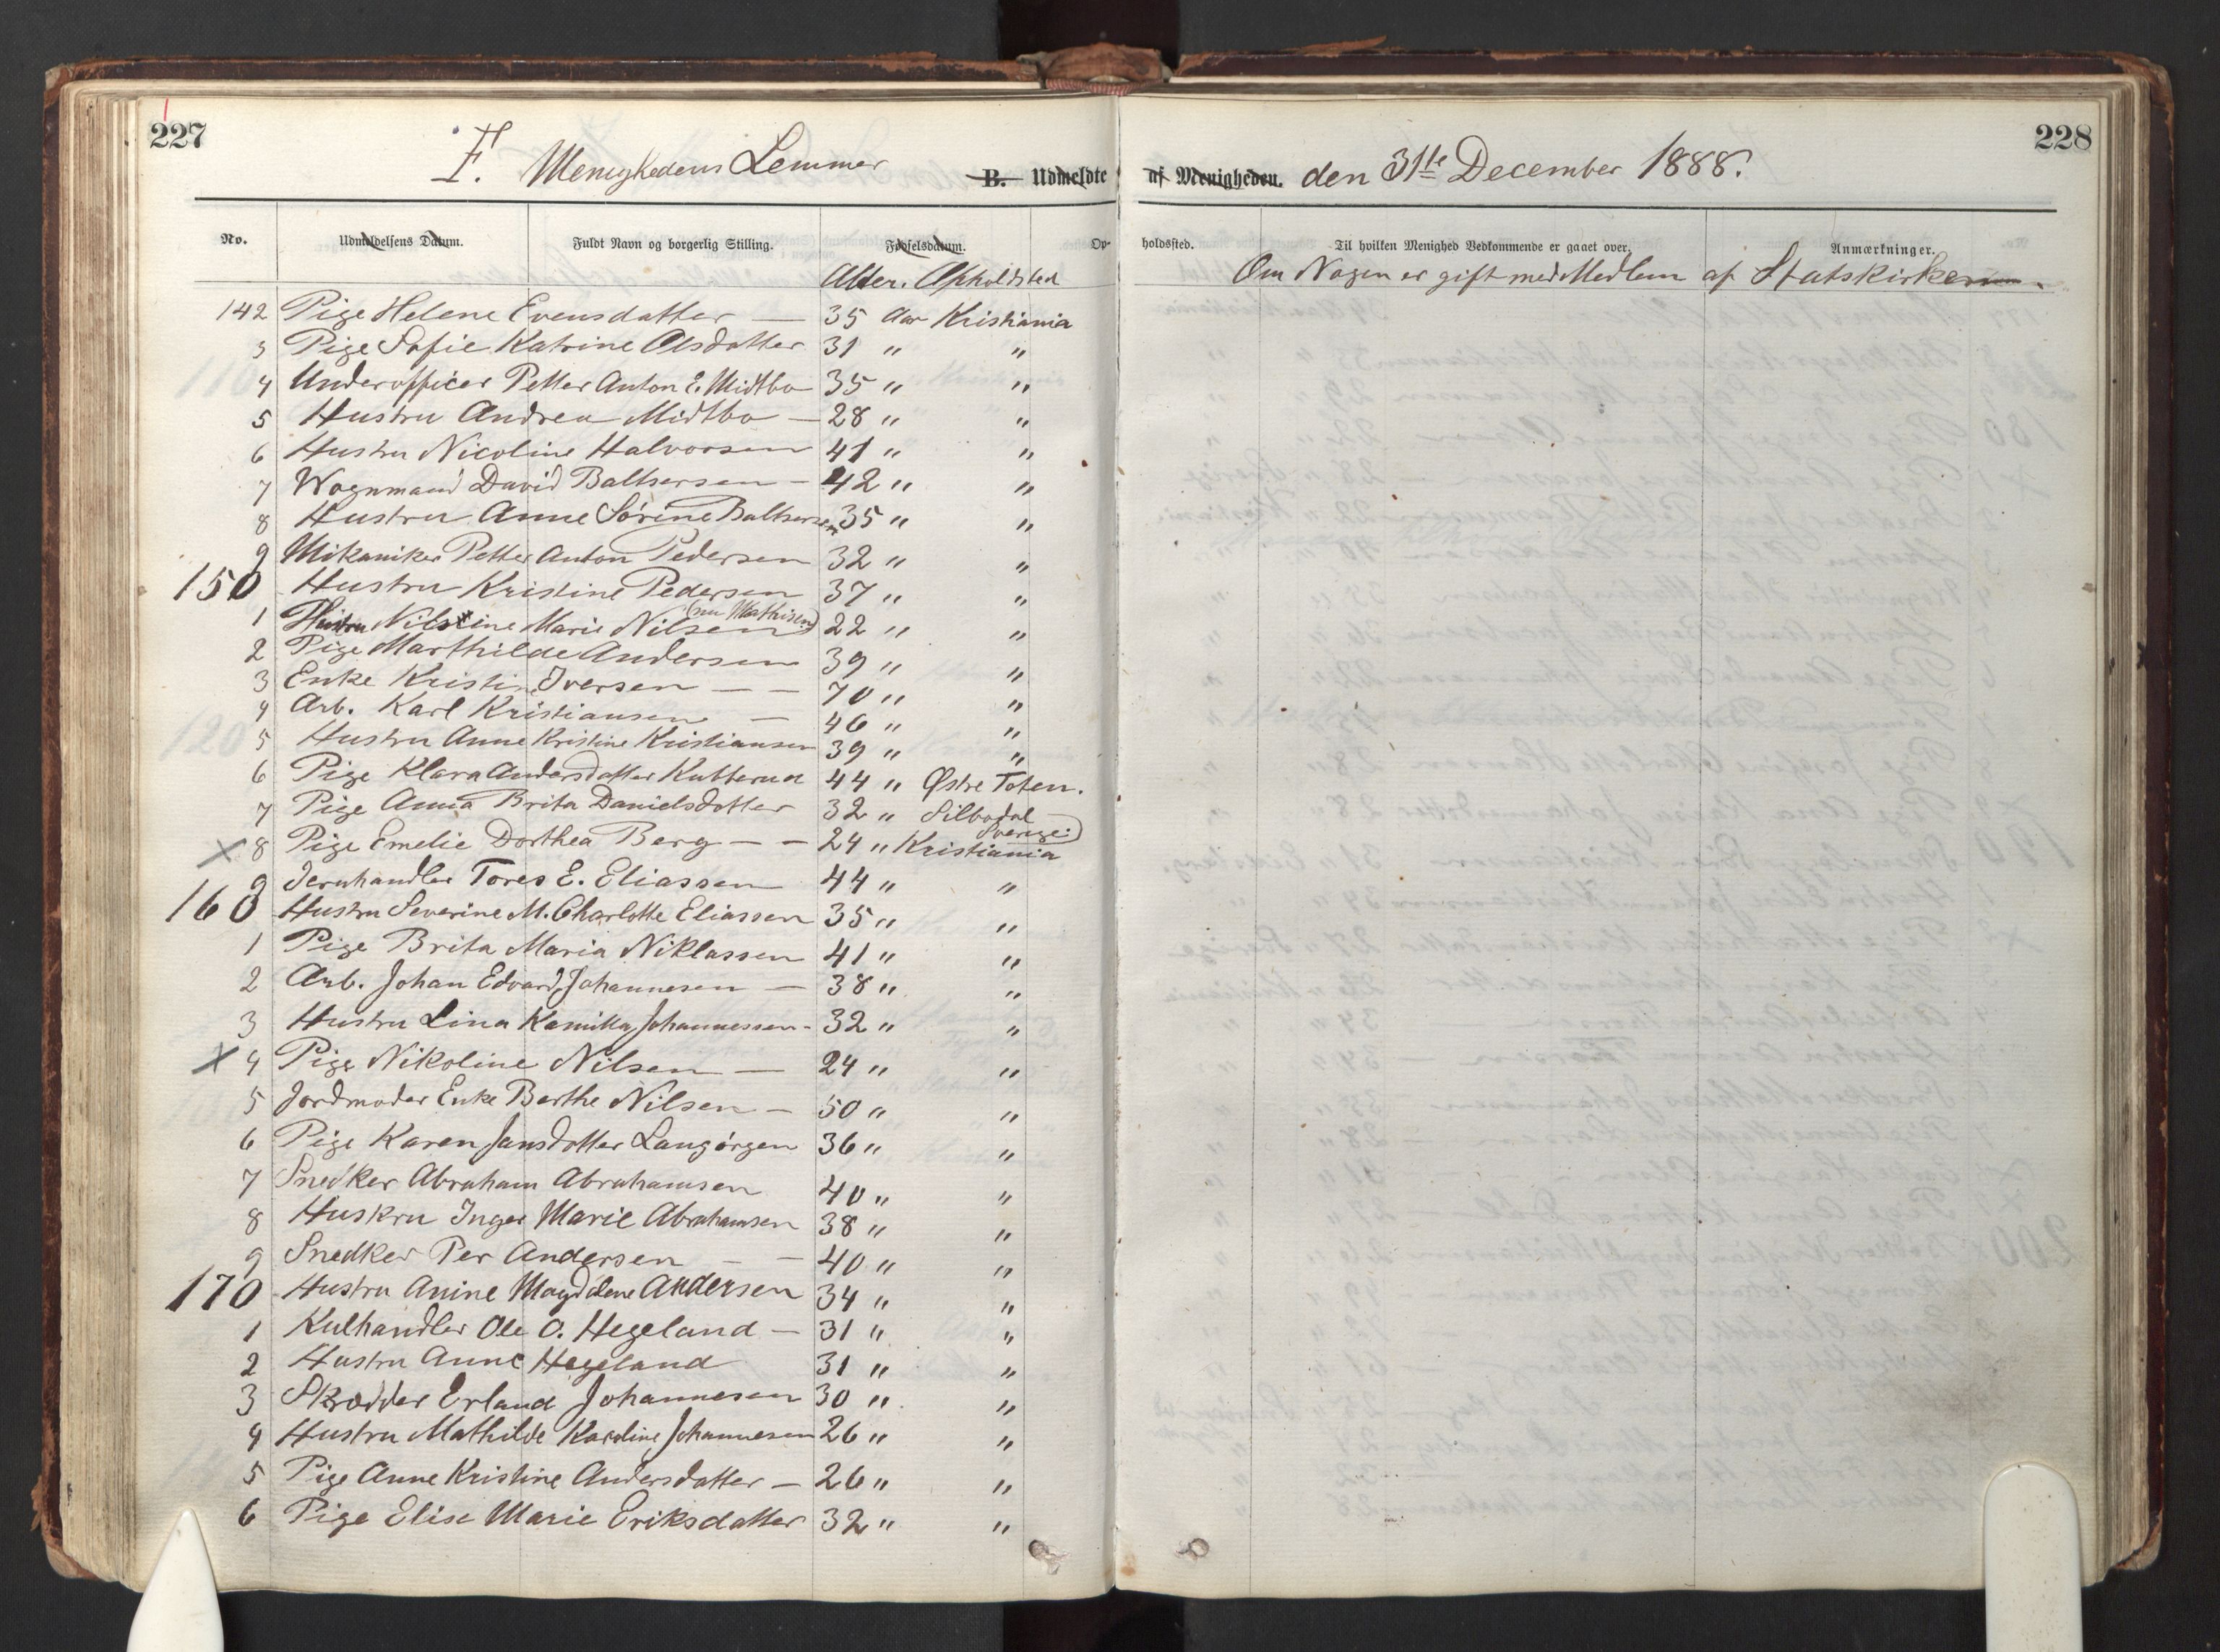 227
F. Menighedens Lemmer B. Udmeldte af Menigheden. den 31te December 1888.
228
No. Udmeldelsens Datum. Fuldt Navn og borgerlig Stilling. Fødselsdatum. Opholdssted. Til hvilken Menighed Vedkommende er gaaet over. Anmærkninger.
Alder. Opholdsted Om Nogen er gift med Medlem af Statskirken.
142 Pige Helene Evensdatter — 35 Aar Kristiania
3 Pige Sofie Katrine Olsdatter 31 " "
4 Underofficer Petter Anton E. Midtbo 35 " "
5 Hustru Andrea Midtbo — 28 " "
6 Hustru Nicoline Halvorsen 41 " "
7 Wognmand David Baltsersen — 42 " "
8 Hustru Anne Sørine Baltsersen 35 " "
9 Mikaniker Petter Anton Pedersen 32 " "
150 Hustru Kristine Pedersen 37 " "
1 Hustru Nilsine Marie Nilsen (nu Mathisen) 22 " "
2 Pige Marthilde Andersen 39 " "
3 Enke Kristin Iversen — — 70 " "
4 Arb. Karl Kristiansen — 46 " "
5 Hustru Anne Kristine Kristiansen 39 " "
6 Pige Klara Andersdatter Kutterud 44 " Østre Toten.
7 Pige Anna Brita Danielsdotter 32 " Silbodal
Sverige)
x 8 Pige Emelie Dorthea Berg — — 24 " Kristiania
9 Jernhandler Tores E. Eliassen 44 " "
160 Hustru Severine M. Charlotte Eliassen 35 " "
1 Pige Brita Maria Niklassen 41 " "
2 Arb. Johan Edvard Johannesen — 38 " "
3 Hustru Lina Kamilla Johannessen - 32 " "
x 4 Pige Nikoline Nilsen — 24 " "
5 Jordmoder Enke Berthe Nilsen — 50 " "
6 Pige Karen Jansdotter Langørgen 36 " "
7 Snedker Abraham Abrahamsen 40 " "
8 Huskru Inger Marie Abrahamsen 38 " "
9 Snedker Per Andersen — — 40 " "
170 Hustru Anine Magdalene Andersen 34 " "
1 Kulhandler Ole O. Hegeland — 31 " "
2 Hustru Anne Hegeland 31 " "
3 Skrædder Erland Johannesen 30 " "
4 Hustru Mathilde Karoline Johannesen 26 " "
5 Pige Anne Kristine Andersdatter — 26 " "
6 Pige Elise Marie Eriksdatter 32 " "